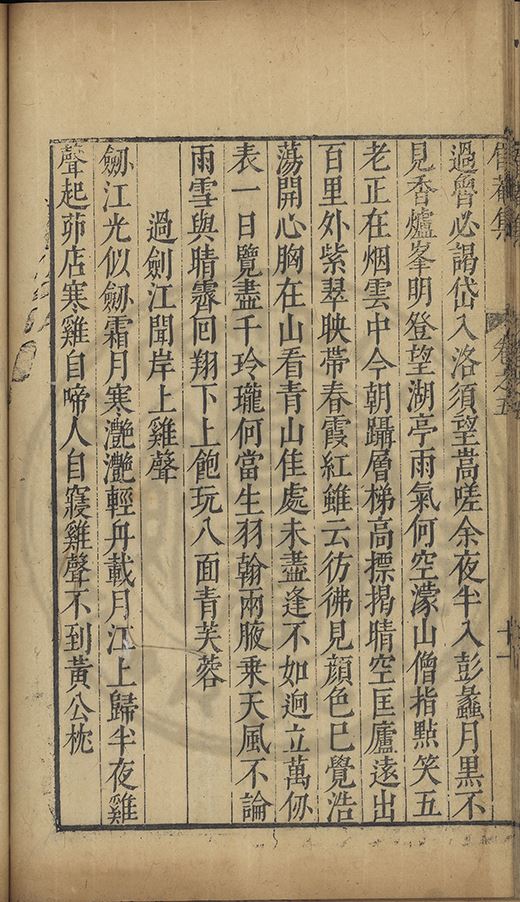 過會必謁岱入洛須望嵩嗟余夜半入彭蠡月黑不
見香爐峯明發望湖亭雨氣何空濛山僧指點笑五
老正在烟雲中今朝躡層梯高標揭晴空匡廬遠出
百里外紫翠映帶春霞紅雖云彷彿見顔色已覺浩
蕩開心胸在山看青山佳處未盡逢不如迥立萬仞
表一日覽盡千玲瓏何當生羽翰兩腋乗天風不論
雨雪與晴霽囘翔下上飽玩八面青芙蓉
過劍江聞岸上雞聲
劒江光似劒霜月寒灔灔輕舟載月江上歸半夜雞
聲起茆店寒雞自啼人自寢雞聲不到黃公枕
集
卷之五
十一